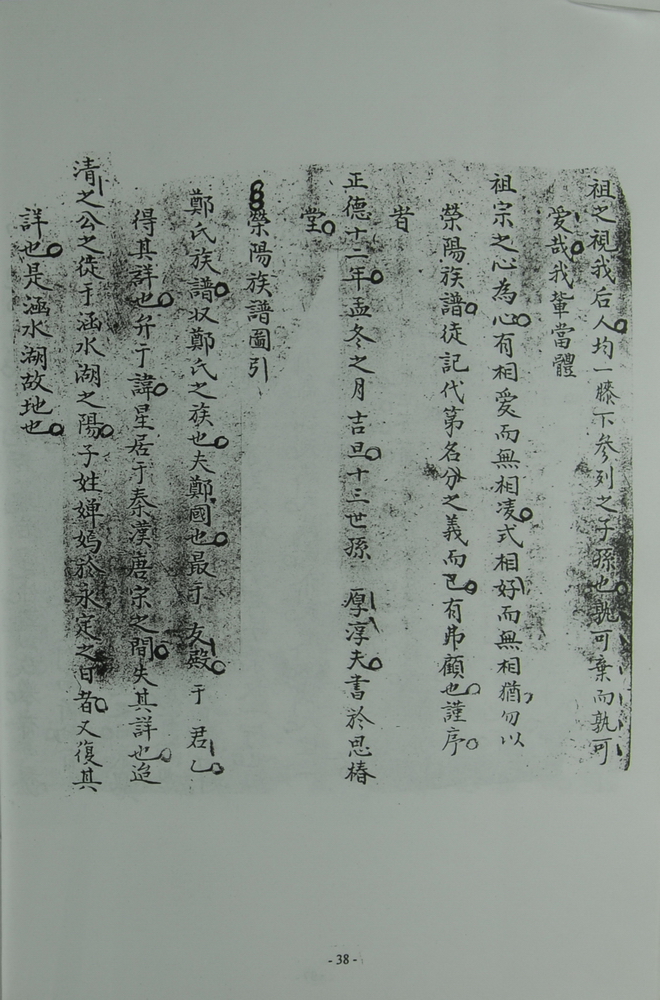 祖之視我后人均一膝下參列之子孫也孰可棄而孰可
愛哉我輩當體
祖宗之心為心有相愛而無相凌式相好而無相猶勿以
滎陽族譜徒記代第名分之義而已有弗顧也謹序
旹
正德十二年孟冬之月吉旦十三世孫 厚淳夫書於思椿
堂
滎陽族譜圖引
鄭氏族譜以鄭氏之族也夫鄭國也最于 友殿于 君乙
得其詳也弁于諱星居于秦漢唐宗之間失其詳也迨
清之公之徙于涵水湖之陽子姓嬋嫣於永定之日者又復其
詳也是涵水湖故地也
- 38 -